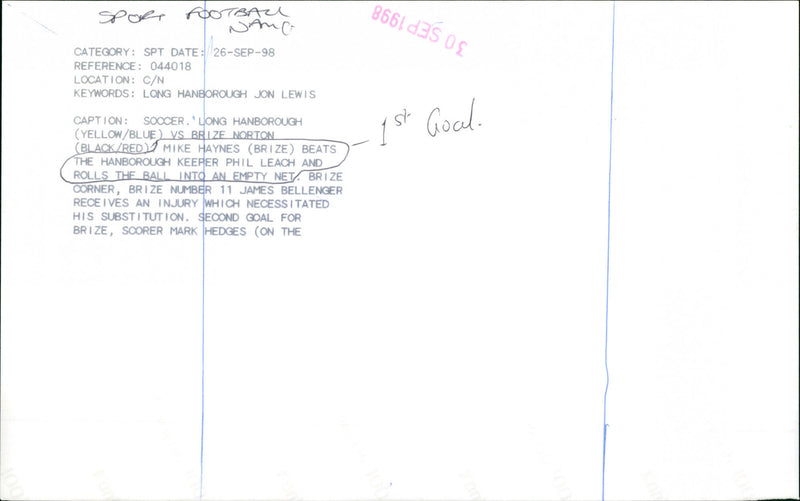 SPORT FOOTBALL
30 SEP 1998
CATEGORY: SPT DATE: 26-SEP-98
REFERENCE: 044018
LOCATION: C/N
KEYWORDS: LONG HANBOROUGH JON LEWIS
CAPTION: SOCCER. LONG HANBOROUGH
(YELLOW/BLUE) VS BRIZE NORTON
(BLACK/RED) MIKE HAYNES (BRIZE) BEATS
THE HANBOROUGH KEEPER PHIL LEACH AND
ROLLS THE BALL INTO AN EMPTY NET. BRIZE
CORNER, BRIZE NUMBER 11 JAMES BELLENGER
RECEIVES AN INJURY WHICH NECESSITATED
HIS SUBSTITUTION. SECOND GOAL FOR
BRIZE, SCORER MARK HEDGES (ON THE
1st Goal.